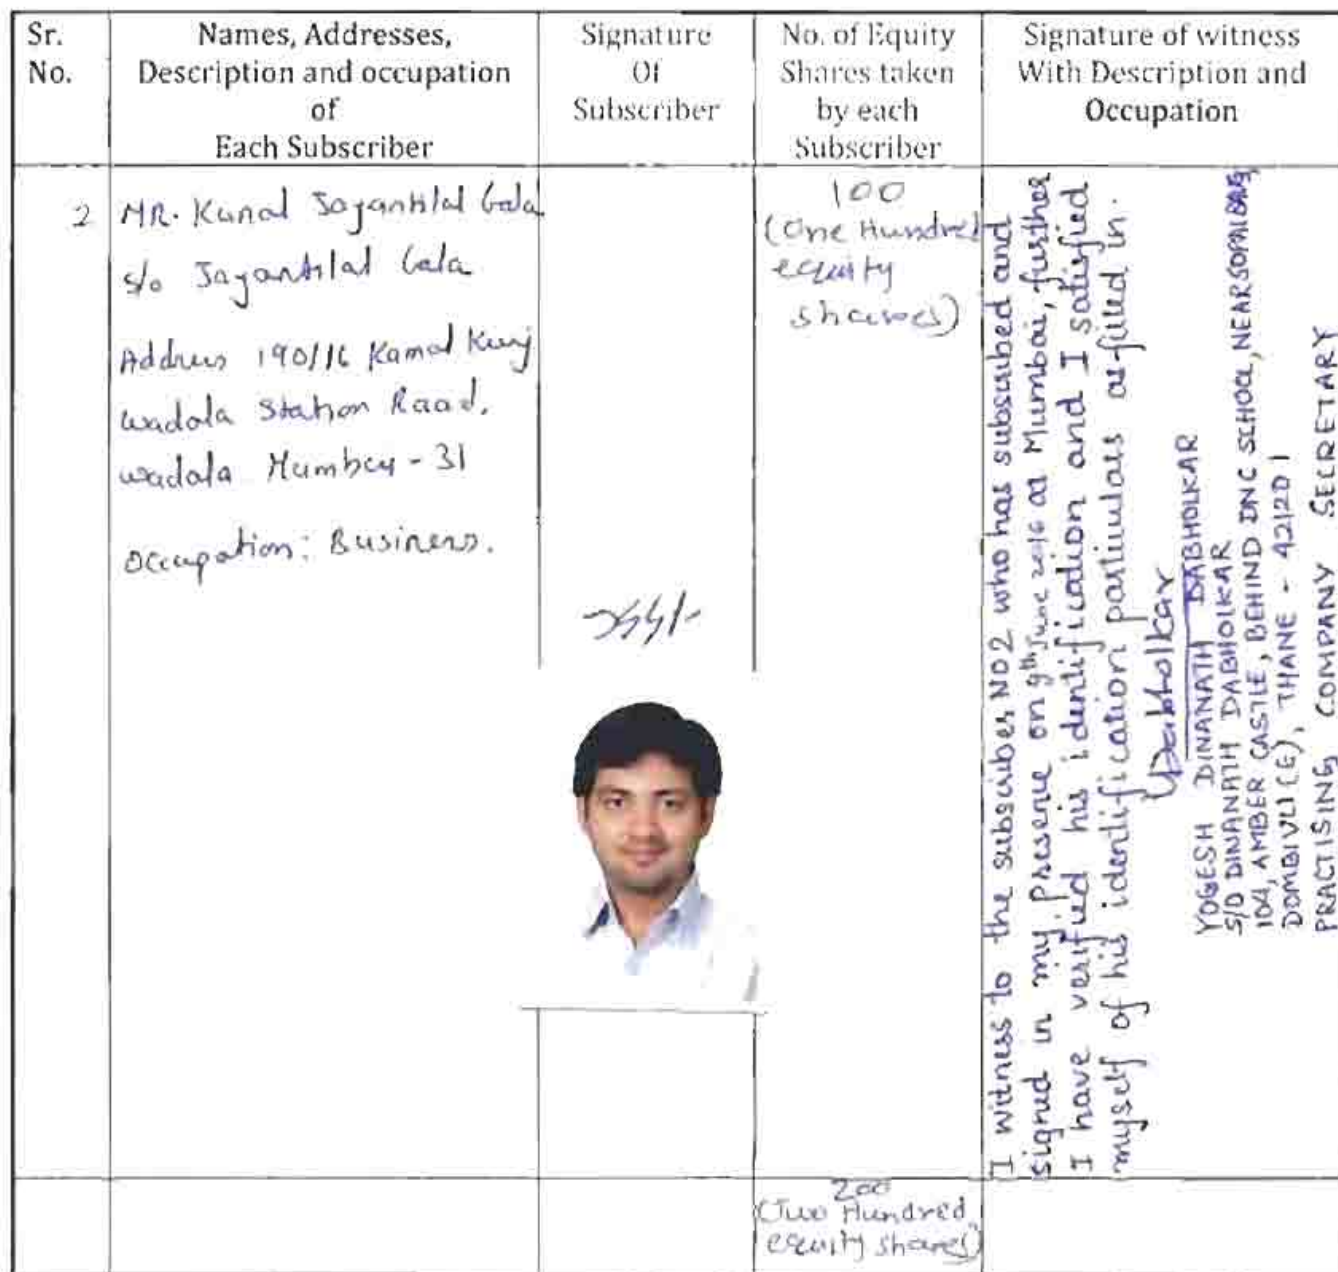 Sr.
No.
Names, Addresses,
Description and occupation
of
Each Subscriber
Signature
Of
Subscriber
No. of Equity
Shares taken
by each
Subscriber
Signature of witness
With Description and
Occupation
2
MR. Kunal Jayantilal Gala
s/o Jayantilal Gala
Address 190/16 Kamal Kunj
wadala Station Road,
wadala Mumbay - 31
Occupation: Business.
100
(One Hundred
equity
shares)
I witness to the subscriber NO2 who has subscribed and
signed in my presence on 9th June 2016 at Mumbai, further
I have verified his identification and I satisfied
myself of his identification particulars as filled in.
YDabholkar
YOGESH DINANATH DABHOLKAR
S/O DINANATH DABHOLKAR
104, AMBER CASTLE, BEHIND DNC SCHOOL, NEAR
DOMBIVLI (E), THANE - 421201
PRACTISING COMPANY SECRETARY
200
(Two Hundred
equity shares)